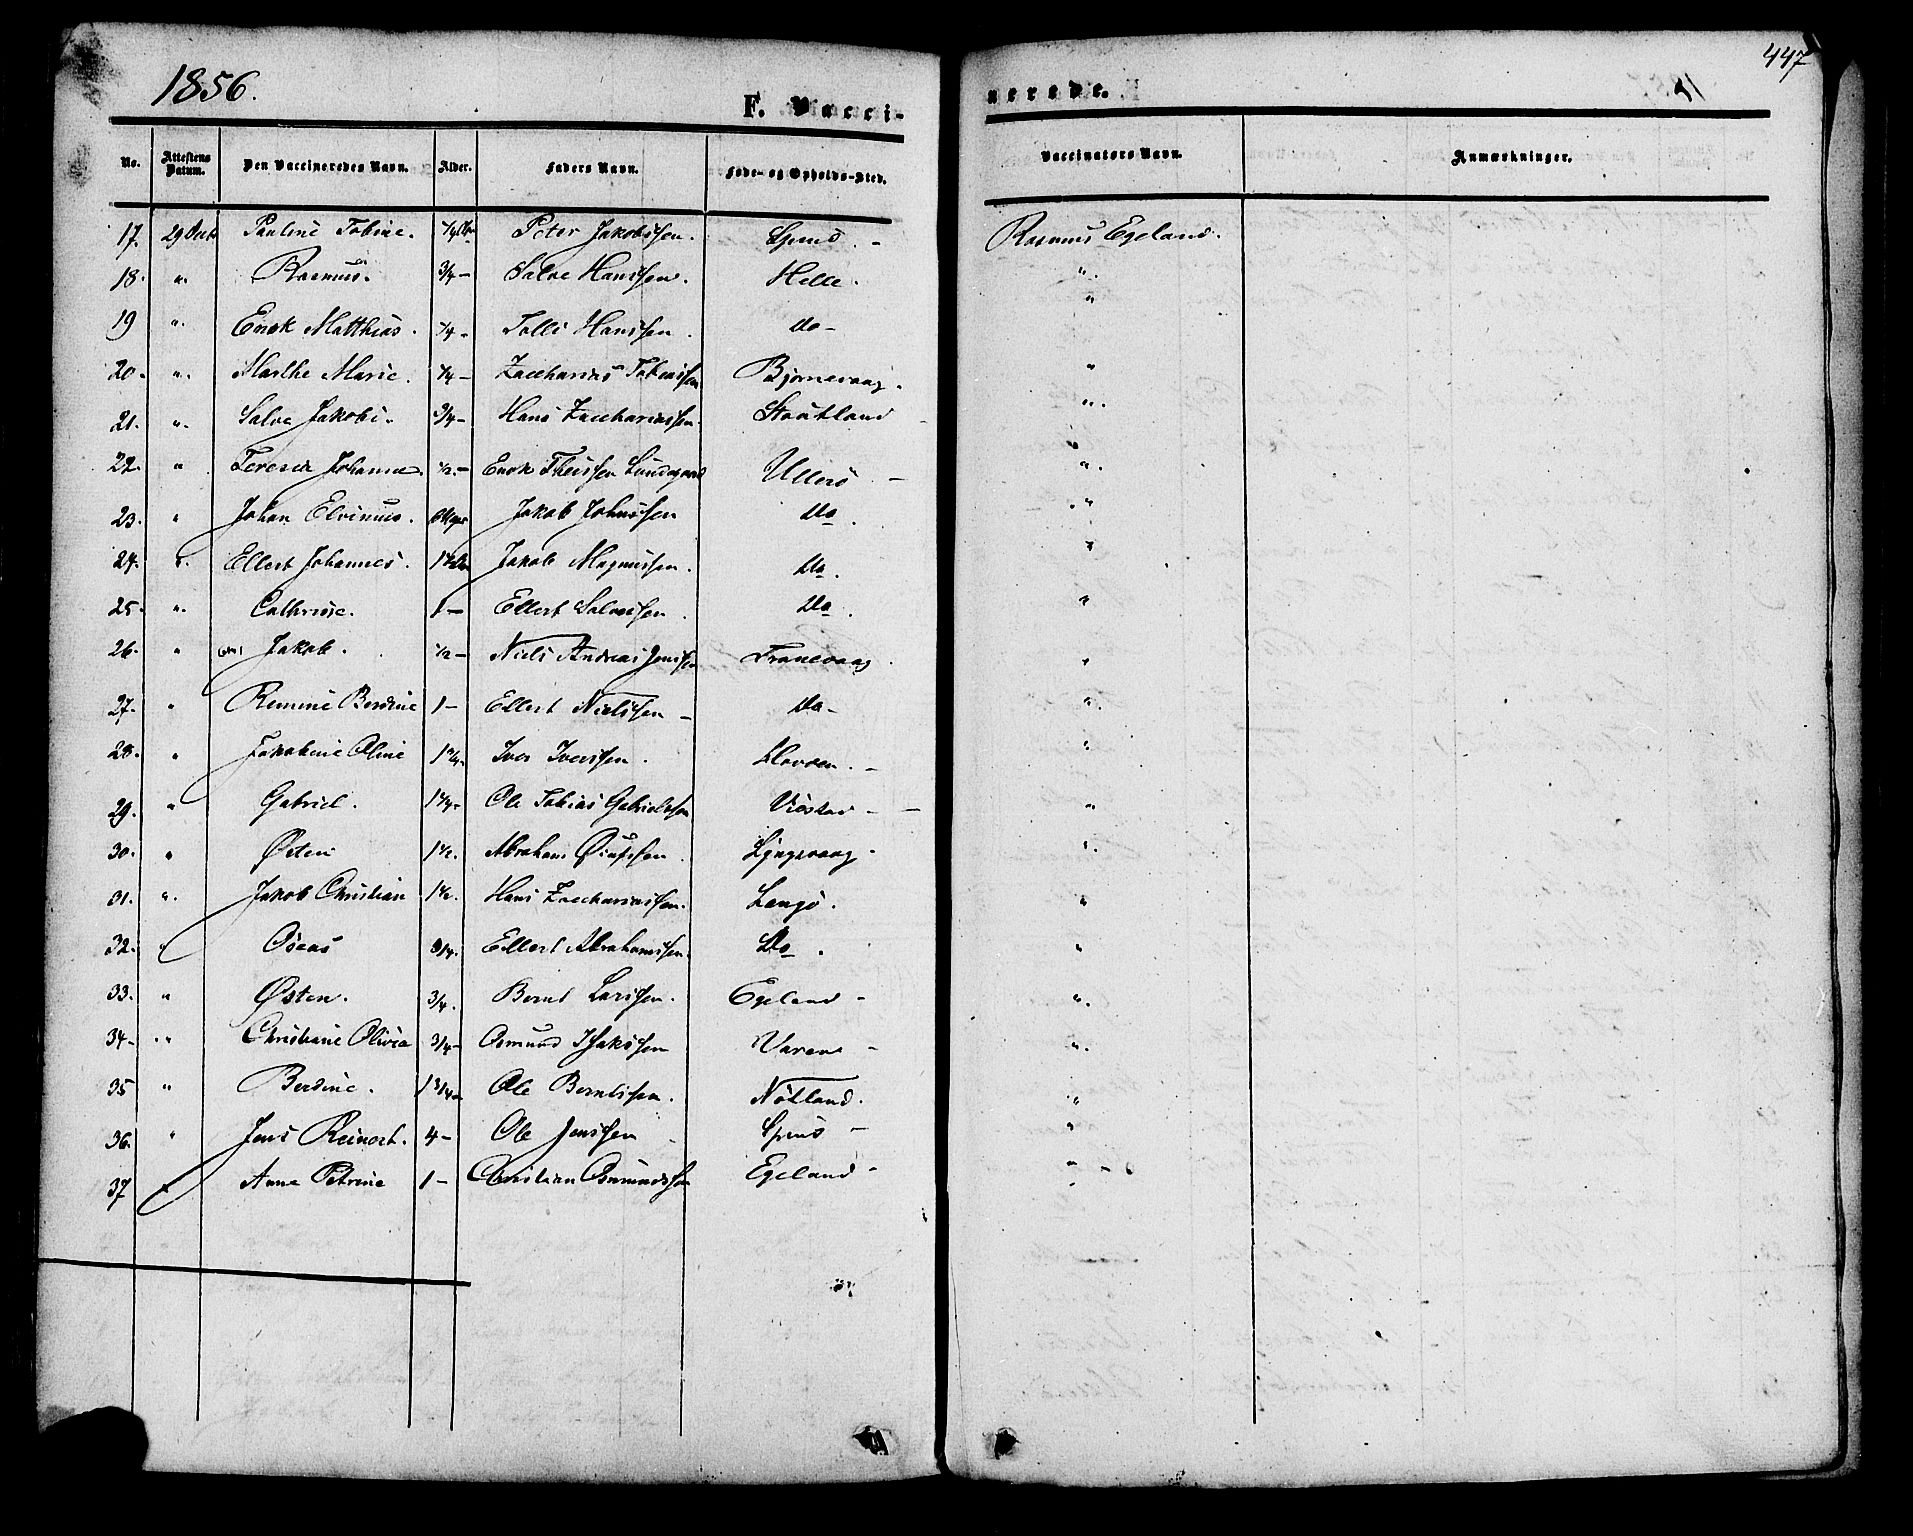 1856.
447
F. Vacci-
nerede.
No. Attestens Datum. Den Vaccineredes Navn. Alder. Faders Navn. Føde- og Opholds-Sted. Vaccinatørs Navn. Anmærkninger.
17. 29 Octb Pauline Tobine. Peter Jakobssen. Spind. - Rasmus Egeland.
18. ". Rasmus. 3/4 - Salve Hanssen. Helle. ".
19 ". Enok Matthias. 1/4 - Tolli Hanssen. do - "
20. ". Marthe Marie. 1/4 - Zaccharias Tobiassen Bjørnevaag. "
21. ". Salve Jakob. 3/4 - Hans Zacchariassen. Stoutland ".
22. " Teresia Johanne. 1/2 - Enok Theissen Lundegaard Ullerø - ".
23. " Johan Elvinus. Jakob Johnssen do. "
24. ". Ellert Johannes. Jakob Magnussen. do. "
25. ". Cathrine. 1 - Ellert Salvessen. do. "
26. " Jakob. 1/2 - Niels Andreas Jenssen Franevaag. "
27. " Remine Berdine 1 - Ellert Nielssen - do - ".
28. " Jakobine Oline Iver Iverssen. - "
29. " Gabriel. Ole Tobias Gabrielssen Viestad - "
30. " Østen 1 1/2. Abraham Lyngsvaag - ".
31. ". Jakob Christian 1 1/2. Hans Zacchariassen. Langø. "
32. " Oseas 3/4. Ellert Abrahamssen. do. "
33. " Østen. 3/4. Bernt Larssen. Egeland - ".
34 - " Christiane Olivia 3/4 - Osmund Isakssen Varene - ".
35 " Berdine. 1 3/4 - Ole Berntssen. Nøtland. "
36. " Jens Reinert. 4 - Ole Jenssen Spind - "
37 " Anne Petrine 1 - Christian Osmundssen Egeland - "